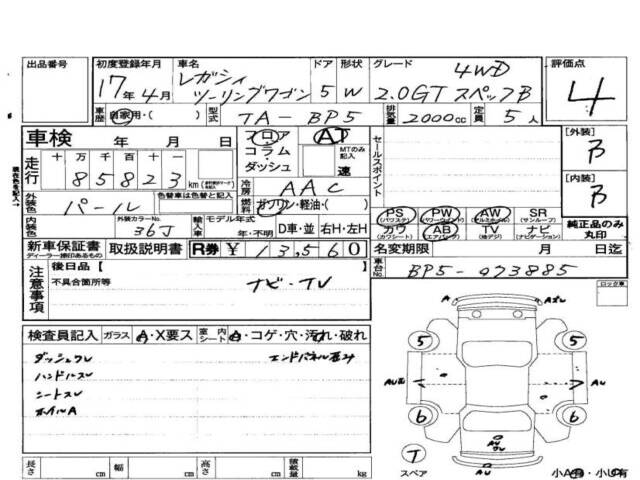 出品番号 初度登録年月 車名 ドア 形状 グレード 評価点
17年4月 レガシィ ツーリングワゴン 5 W 4WD 2.0GT スペックB 4
車歴 自家用・( ) 型式 TA-BP5 排気量 2000cc 定員 5人
車検 年 月 日 フロア コラム・ダッシュ AT MTのみ記入 速 セールスポイント [外装] B
走行 十 万 千 百 十 一
85823 km
冷房 AAC [内装] B
外装色 パール 色替車は色替と記入 燃料 ガソリン・軽油・( )
PS (パワステ) PW (パワーウィンド) AW (アルミホイール) SR (サンルーフ)
内装色 外装カラーNo. 36J 輸入車 モデル年式 年・不明 D車・並 右H・左H
カワ (カワシート) AB (エアバック) TV (地デジ) ナビ (ナビゲーション) 純正品のみ丸印
新車保証書 ディーラー捺印あるもの 取扱説明書 R券 ¥13,560 名変期限 月 日迄
車台No. BP5-073885
注意事項 後日品【 】 ロック車
不具合箇所等 ナビ・TV
検査員記入 ガラス A・X要ス 室内シート A・コゲ・穴・汚れ・破れ
ダッシュクレ エンドパネル歪み
ハンドルスレ
シートスレ
ホイルA
A
5 5
AU
6 6
T
スペア
AU
長さ cm 幅 cm 高さ cm 積載量 kg
小A有・小U有